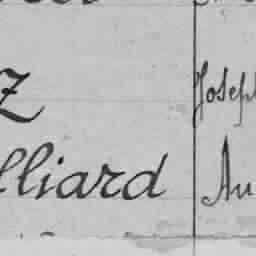 z Joseph
lliard Au